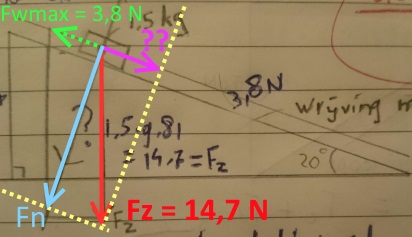 Fwmax = 3,8 N
1,5 kg
??
3,8 N
wrijving m
?
1,5.9,81
= 14,7 = Fz
20°
Fn
Fz
Fz = 14,7 N